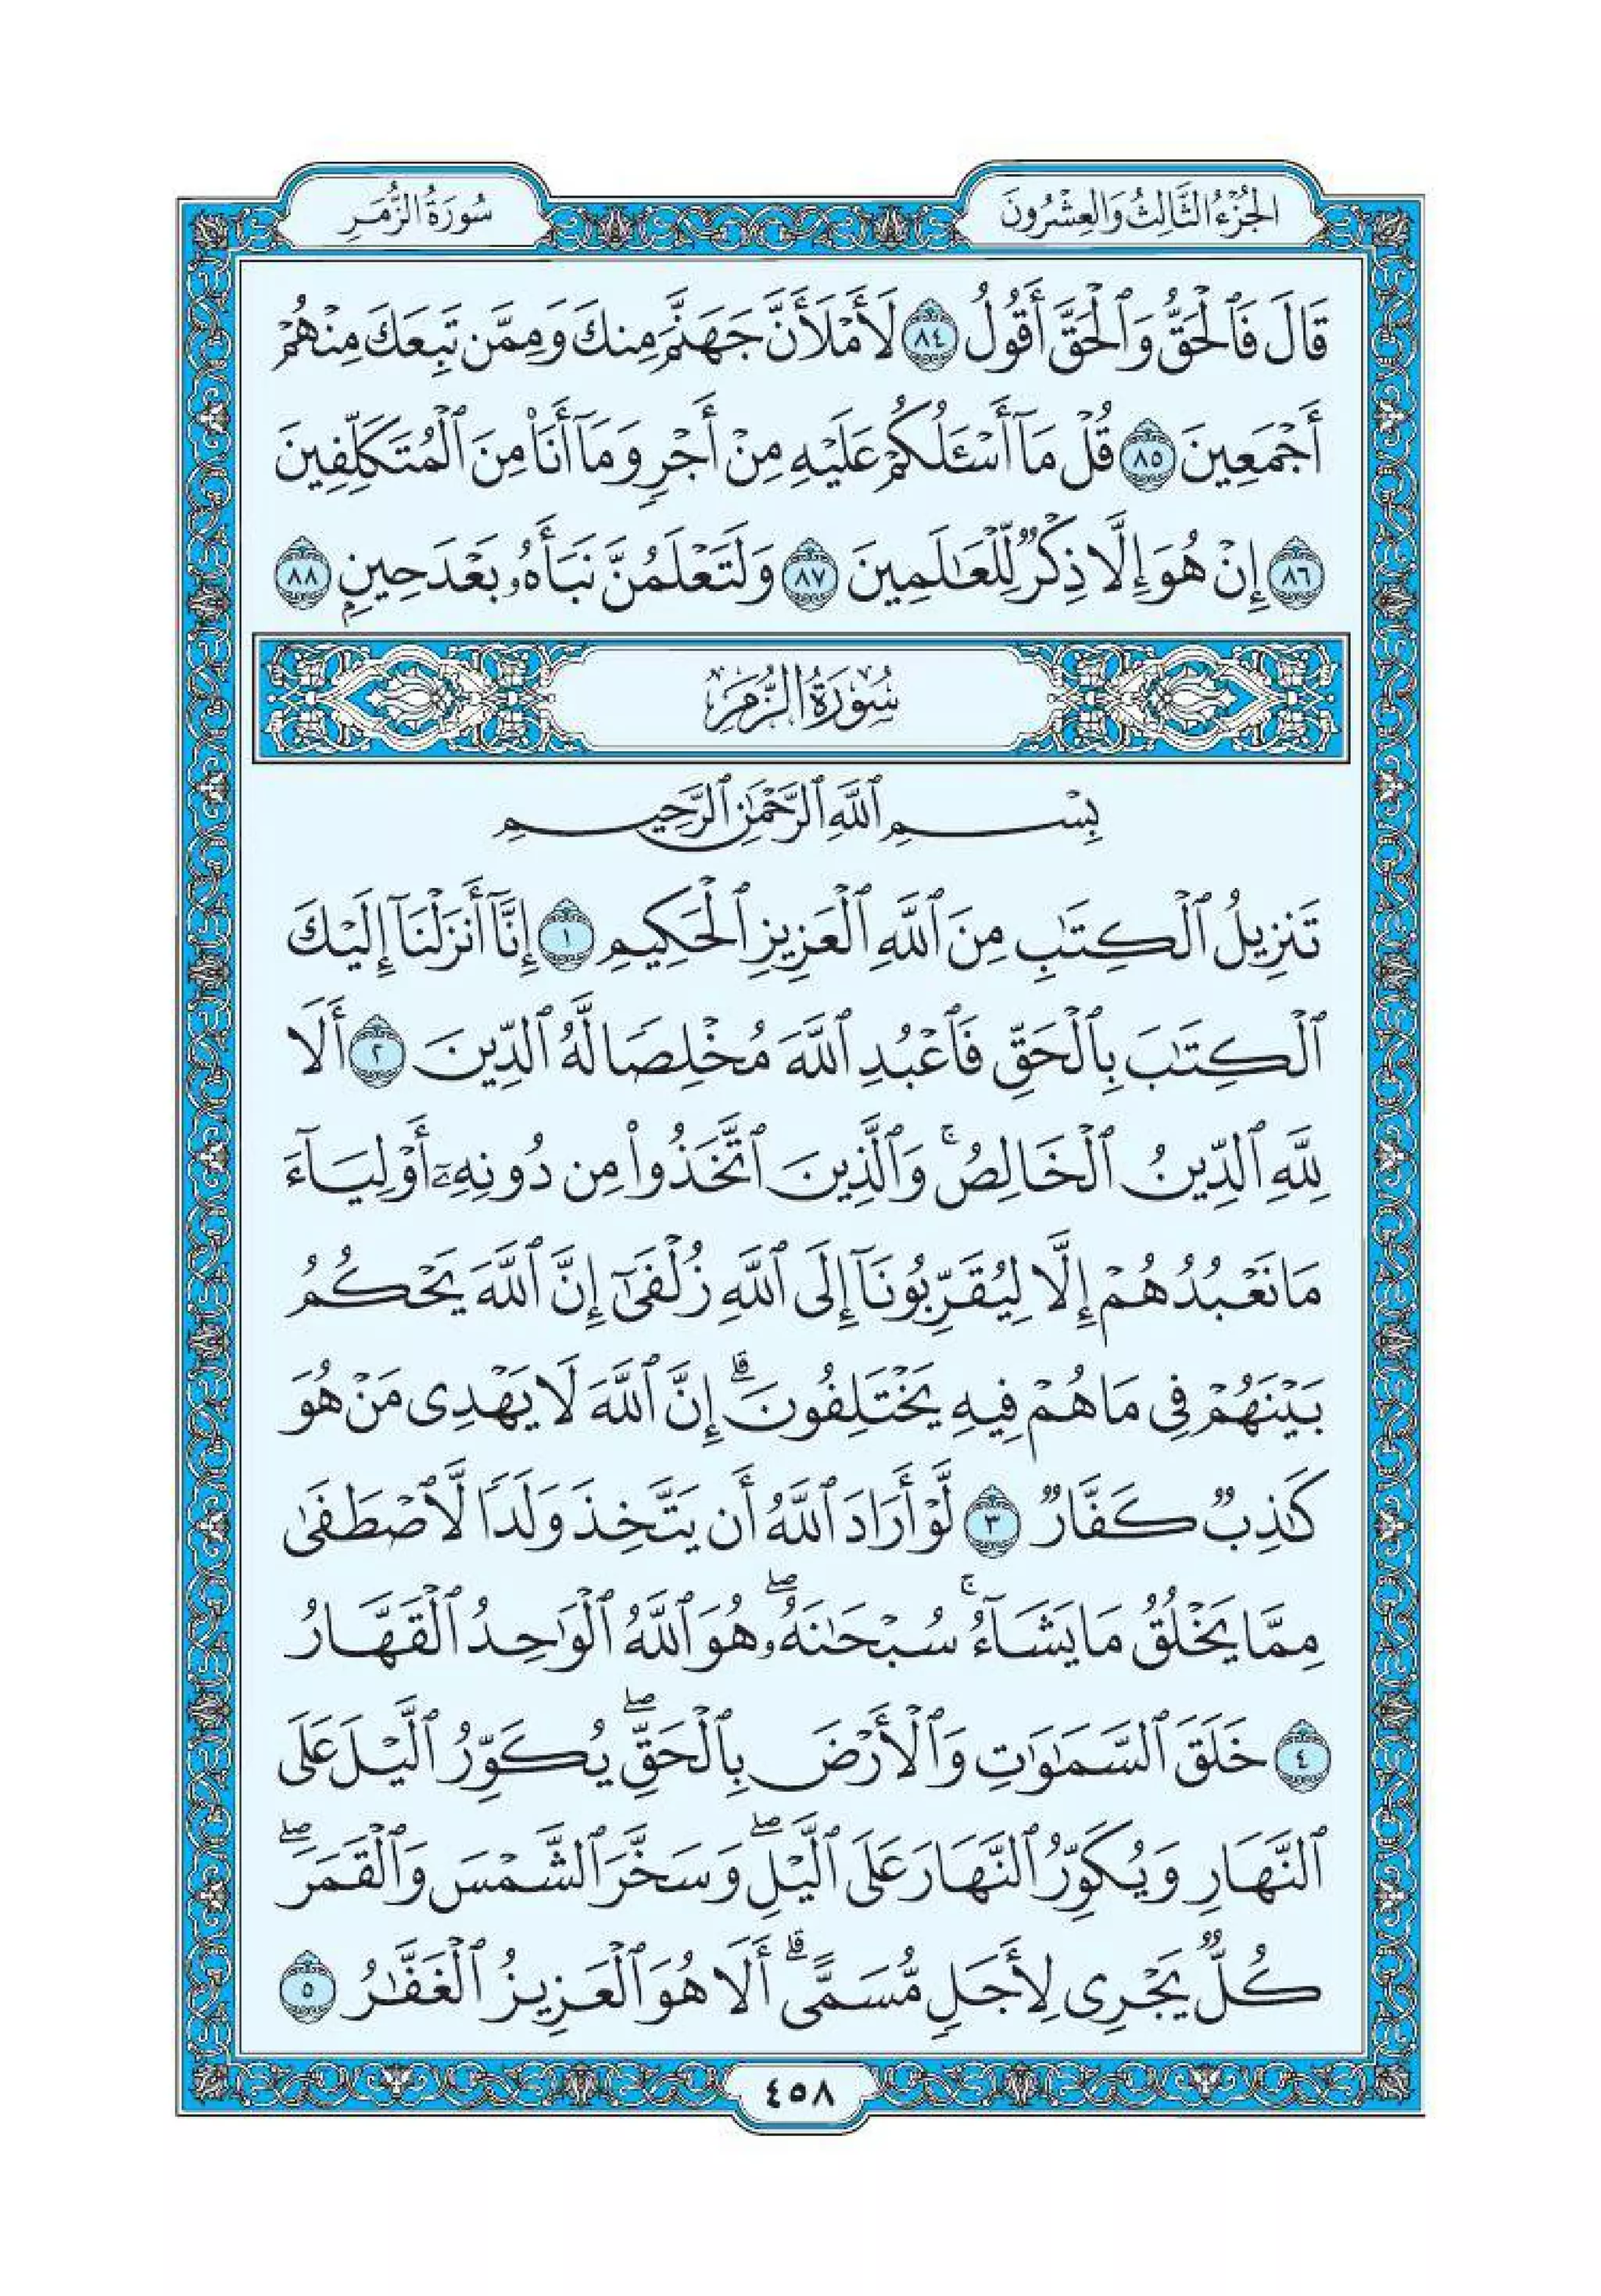 الجزء الثالث والعشرون
سورة الزمر
قَالَ فَٱلْحَقُّ وَٱلْحَقَّ أَقُولُ ٨٤ لَأَمْلَأَنَّ جَهَنَّمَ مِنكَ وَمِمَّن تَبِعَكَ مِنْهُمْ
أَجْمَعِينَ ٨٥ قُلْ مَآ أَسْـَٔلُكُمْ عَلَيْهِ مِنْ أَجْرٍ وَمَآ أَنَا۠ مِنَ ٱلْمُتَكَلِّفِينَ
٨٦ إِنْ هُوَ إِلَّا ذِكْرٌ لِّلْعَـٰلَمِينَ ٨٧ وَلَتَعْلَمُنَّ نَبَأَهُۥ بَعْدَ حِينٍۭ ٨٨
سُورَةُ الزُّمَرِ
بِسْمِ ٱللَّهِ ٱلرَّحْمَـٰنِ ٱلرَّحِيمِ
تَنزِيلُ ٱلْكِتَـٰبِ مِنَ ٱللَّهِ ٱلْعَزِيزِ ٱلْحَكِيمِ ١ إِنَّآ أَنزَلْنَآ إِلَيْكَ
ٱلْكِتَـٰبَ بِٱلْحَقِّ فَٱعْبُدِ ٱللَّهَ مُخْلِصًا لَّهُ ٱلدِّينَ ٢ أَلَا
لِلَّهِ ٱلدِّينُ ٱلْخَالِصُ ۚ وَٱلَّذِينَ ٱتَّخَذُوا۟ مِن دُونِهِۦٓ أَوْلِيَآءَ
مَا نَعْبُدُهُمْ إِلَّا لِيُقَرِّبُونَآ إِلَى ٱللَّهِ زُلْفَىٰٓ إِنَّ ٱللَّهَ يَحْكُمُ
بَيْنَهُمْ فِى مَا هُمْ فِيهِ يَخْتَلِفُونَ ۗ إِنَّ ٱللَّهَ لَا يَهْدِى مَنْ هُوَ
كَـٰذِبٌ كَفَّارٌ ٣ لَّوْ أَرَادَ ٱللَّهُ أَن يَتَّخِذَ وَلَدًا لَّٱصْطَفَىٰ
مِمَّا يَخْلُقُ مَا يَشَآءُ ۚ سُبْحَـٰنَهُۥ ۖ هُوَ ٱللَّهُ ٱلْوَٰحِدُ ٱلْقَهَّارُ
٤ خَلَقَ ٱلسَّمَـٰوَٰتِ وَٱلْأَرْضَ بِٱلْحَقِّ ۖ يُكَوِّرُ ٱلَّيْلَ عَلَى
ٱلنَّهَارِ وَيُكَوِّرُ ٱلنَّهَارَ عَلَى ٱلَّيْلِ ۖ وَسَخَّرَ ٱلشَّمْسَ وَٱلْقَمَرَ ۖ
كُلٌّ يَجْرِى لِأَجَلٍ مُّسَمًّى ۗ أَلَا هُوَ ٱلْعَزِيزُ ٱلْغَفَّـٰرُ ٥
٤٥٨